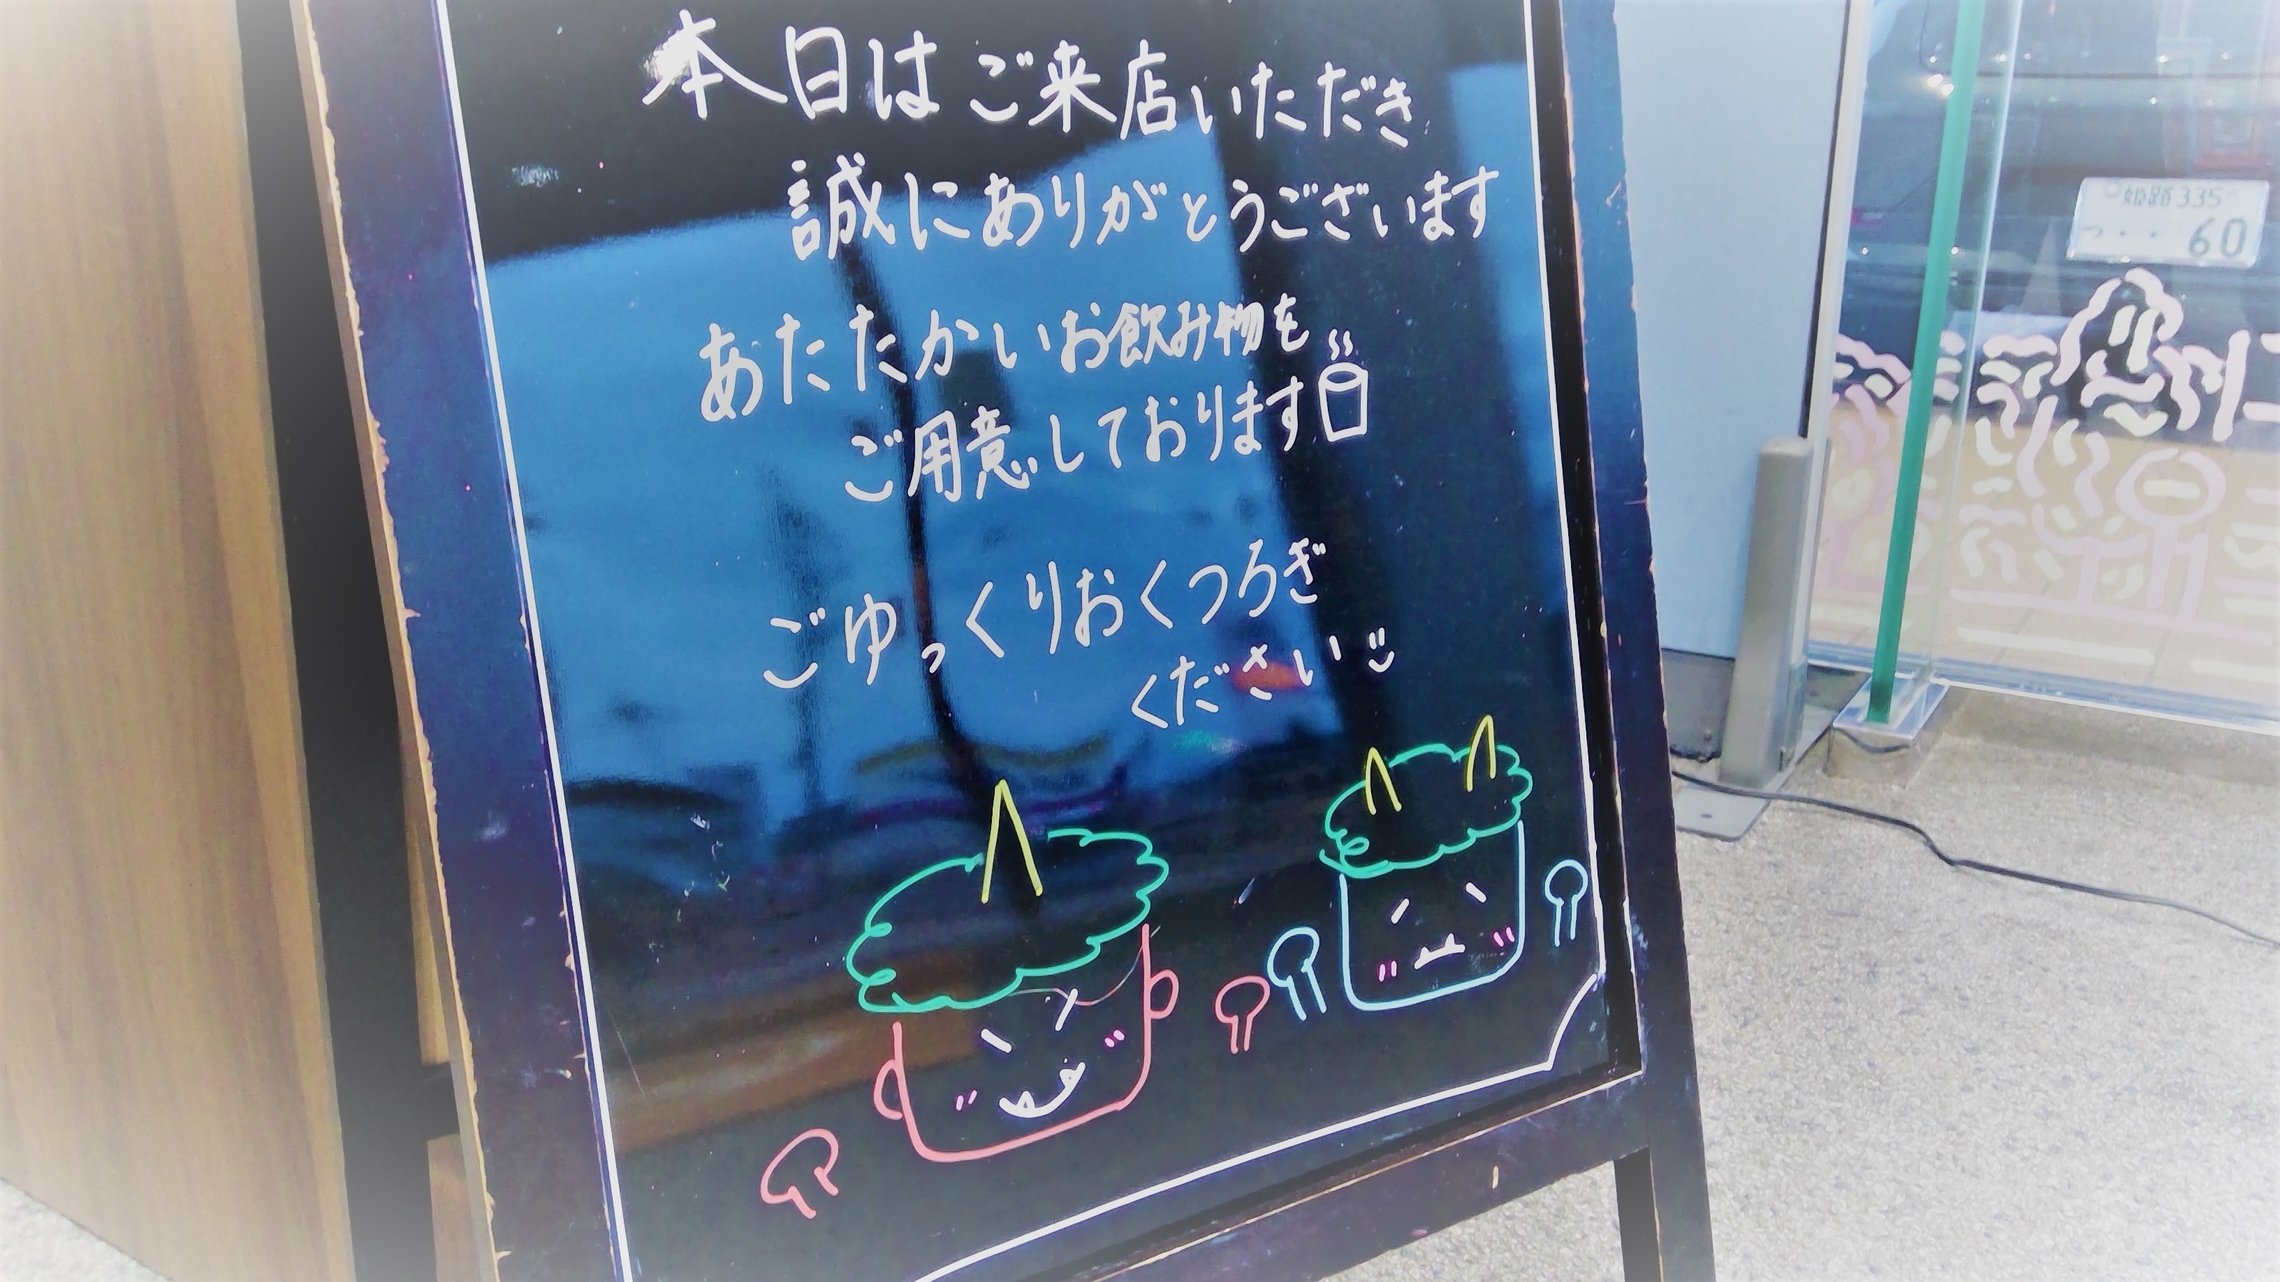 本日はご来店いただき
誠にありがとうございます
あたたかいお飲み物を
ご用意しております
ごゆっくりおくつろぎ
ください
姫路 335
つ ・・60